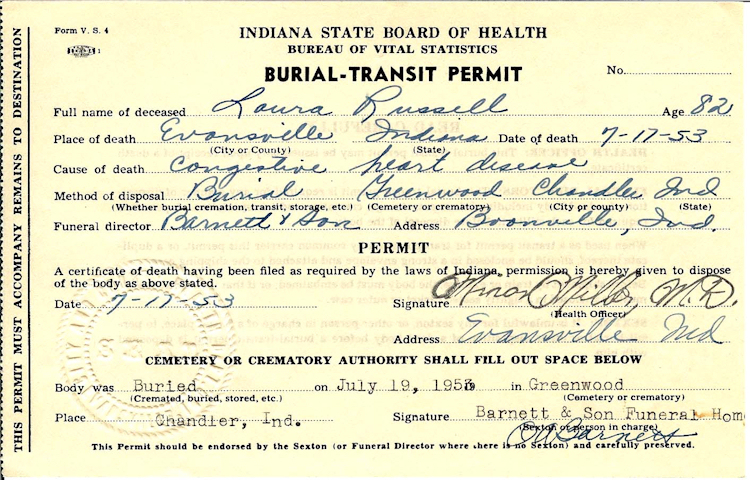 Form V. S. 4
INDIANA STATE BOARD OF HEALTH
BUREAU OF VITAL STATISTICS
BURIAL-TRANSIT PERMIT
No.
Full name of deceased Laura Russell Age 82
Place of death Evansville Indiana Date of death 7-17-53
(City or County) (State)
Cause of death Congestive heart disease
Method of disposal Burial Greenwood Chandler Ind
(Whether burial cremation, transit, storage, etc.) (Cemetery or crematory) (City or county) (State)
Funeral director Barnett & Son Address Boonville, Ind.
PERMIT
A certificate of death having been filed as required by the laws of Indiana, permission is hereby given to dispose
of the body as above stated.
Date 7-17-53 Signature Minor Miller, M.D.
(Health Officer)
Address Evansville Ind
CEMETERY OR CREMATORY AUTHORITY SHALL FILL OUT SPACE BELOW
Body was Buried on July 19, 1953 in Greenwood
(Cremated, buried, stored, etc.) (Cemetery or crematory)
Place Chandler, Ind. Signature Barnett & Son Funeral Home
(Sexton or person in charge)
Barnett
This Permit should be endorsed by the Sexton (or Funeral Director where there is no Sexton) and carefully preserved.
THIS PERMIT MUST ACCOMPANY REMAINS TO DESTINATION